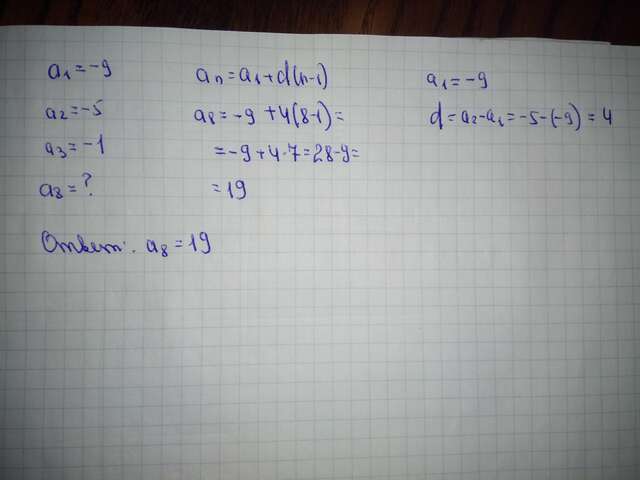 a₁=-9
a₂=-5
a₃=-1
a₈=?
aₙ=a₁+d(n-1)
a₈=-9+4(8-1)=
=-9+4·7=28-9=
=19
a₁=-9
d=a₂-a₁=-5-(-9)=4
Ответ: a₈=19